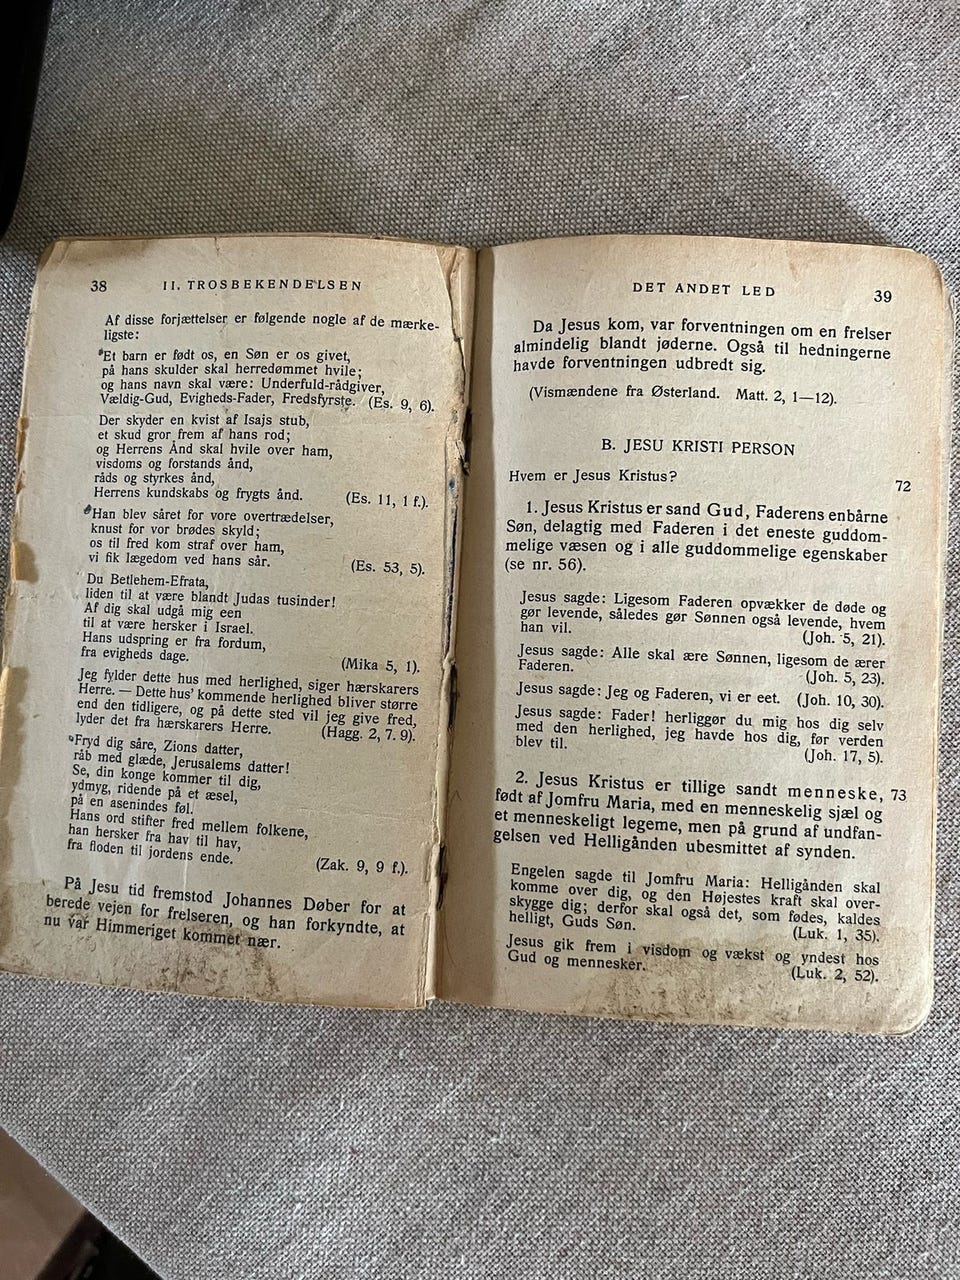 38 II. TROSBEKENDELSEN
Af disse forjættelser er følgende nogle af de mærke-
ligste:
*Et barn er født os, en Søn er os givet,
på hans skulder skal herredømmet hvile;
og hans navn skal være: Underfuld-rådgiver,
Vældig-Gud, Evigheds-Fader, Fredsfyrste. (Es. 9, 6).
Der skyder en kvist af Isajs stub,
et skud gror frem af hans rod;
og Herrens Ånd skal hvile over ham,
visdoms og forstands ånd,
råds og styrkes ånd,
Herrens kundskabs og frygts ånd. (Es. 11, 1 f.).
*Han blev såret for vore overtrædelser,
knust for vor brødes skyld;
os til fred kom straf over ham,
vi fik lægedom ved hans sår. (Es. 53, 5).
Du Betlehem-Efrata,
liden til at være blandt Judas tusinder!
Af dig skal udgå mig een
til at være hersker i Israel.
Hans udspring er fra fordum,
fra evigheds dage. (Mika 5, 1).
Jeg fylder dette hus med herlighed, siger hærskarers
Herre. — Dette hus' kommende herlighed bliver større
end den tidligere, og på dette sted vil jeg give fred,
lyder det fra hærskarers Herre. (Hagg. 2, 7. 9).
*Fryd dig såre, Zions datter,
råb med glæde, Jerusalems datter!
Se, din konge kommer til dig,
ydmyg, ridende på et æsel,
på en asenindes føl.
Hans ord stifter fred mellem folkene,
han hersker fra hav til hav,
fra floden til jordens ende. (Zak. 9, 9 f.).
På Jesu tid fremstod Johannes Døber for at
berede vejen for frelseren, og han forkyndte, at
nu var Himmeriget kommet nær.
DET ANDET LED 39
Da Jesus kom, var forventningen om en frelser
almindelig blandt jøderne. Også til hedningerne
havde forventningen udbredt sig.
(Vismændene fra Østerland. Matt. 2, 1—12).
B. JESU KRISTI PERSON
Hvem er Jesus Kristus? 72
1. Jesus Kristus er sand Gud, Faderens enbårne
Søn, delagtig med Faderen i det eneste guddom-
melige væsen og i alle guddommelige egenskaber
(se nr. 56).
Jesus sagde: Ligesom Faderen opvækker de døde og
gør levende, således gør Sønnen også levende, hvem
han vil. (Joh. 5, 21).
Jesus sagde: Alle skal ære Sønnen, ligesom de ærer
Faderen. (Joh. 5, 23).
Jesus sagde: Jeg og Faderen, vi er eet. (Joh. 10, 30).
Jesus sagde: Fader! herliggør du mig hos dig selv
med den herlighed, jeg havde hos dig, før verden
blev til. (Joh. 17, 5).
2. Jesus Kristus er tillige sandt menneske, 73
født af Jomfru Maria, med en menneskelig sjæl og
et menneskeligt legeme, men på grund af undfan-
gelsen ved Helligånden ubesmittet af synden.
Engelen sagde til Jomfru Maria: Helligånden skal
komme over dig, og den Højestes kraft skal over-
skygge dig; derfor skal også det, som fødes, kaldes
helligt, Guds Søn. (Luk. 1, 35).
Jesus gik frem i visdom og vækst og yndest hos
Gud og mennesker. (Luk. 2, 52).